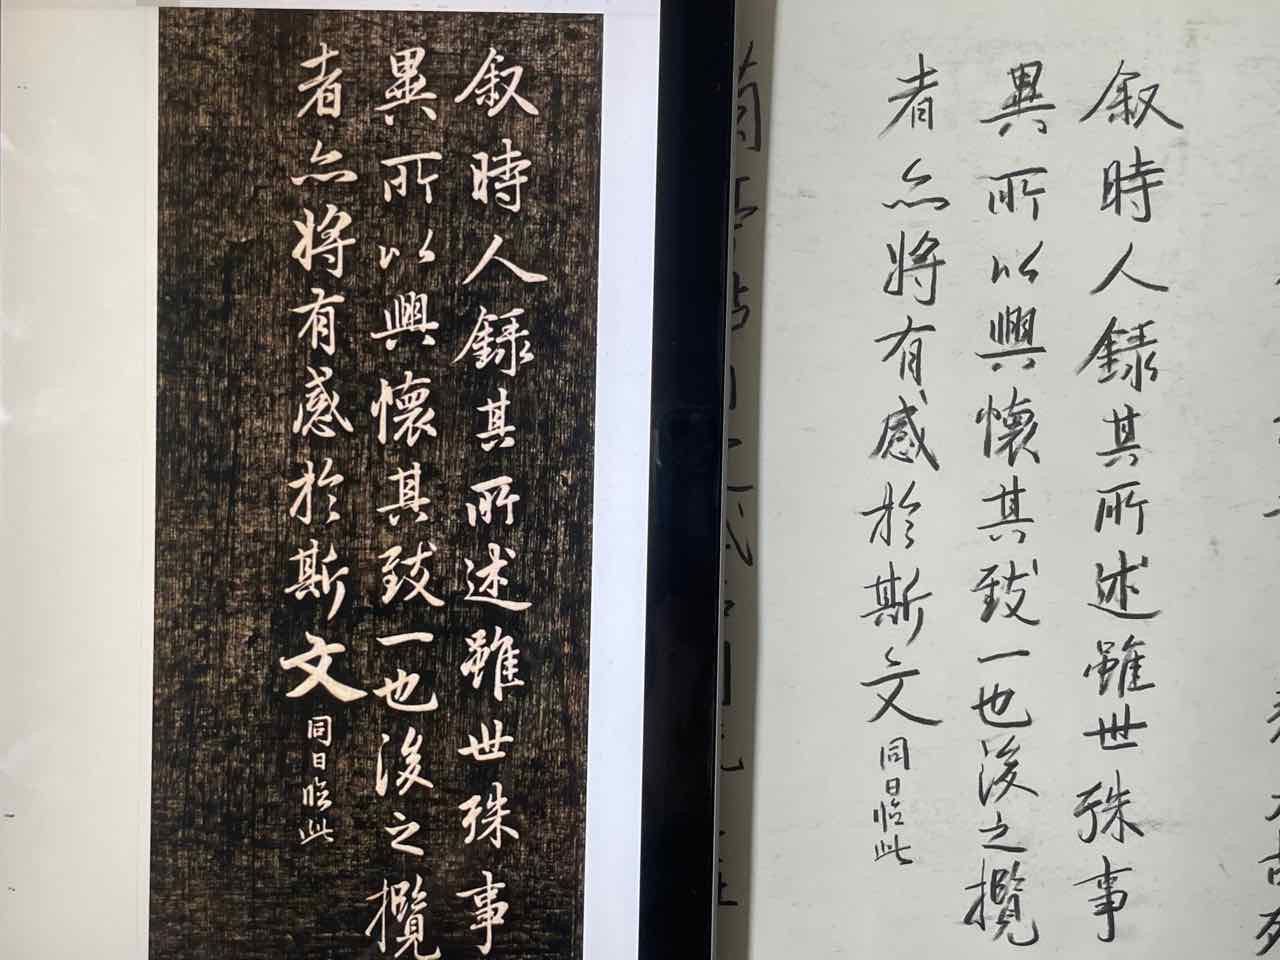 叙時人録其所述雖世殊事
異所以興懷其致一也後之攬
者亦將有感於斯文同日臨此
叙時人録其所述雖世殊事
異所以興懷其致一也後之攬
者亦將有感於斯文同日臨此